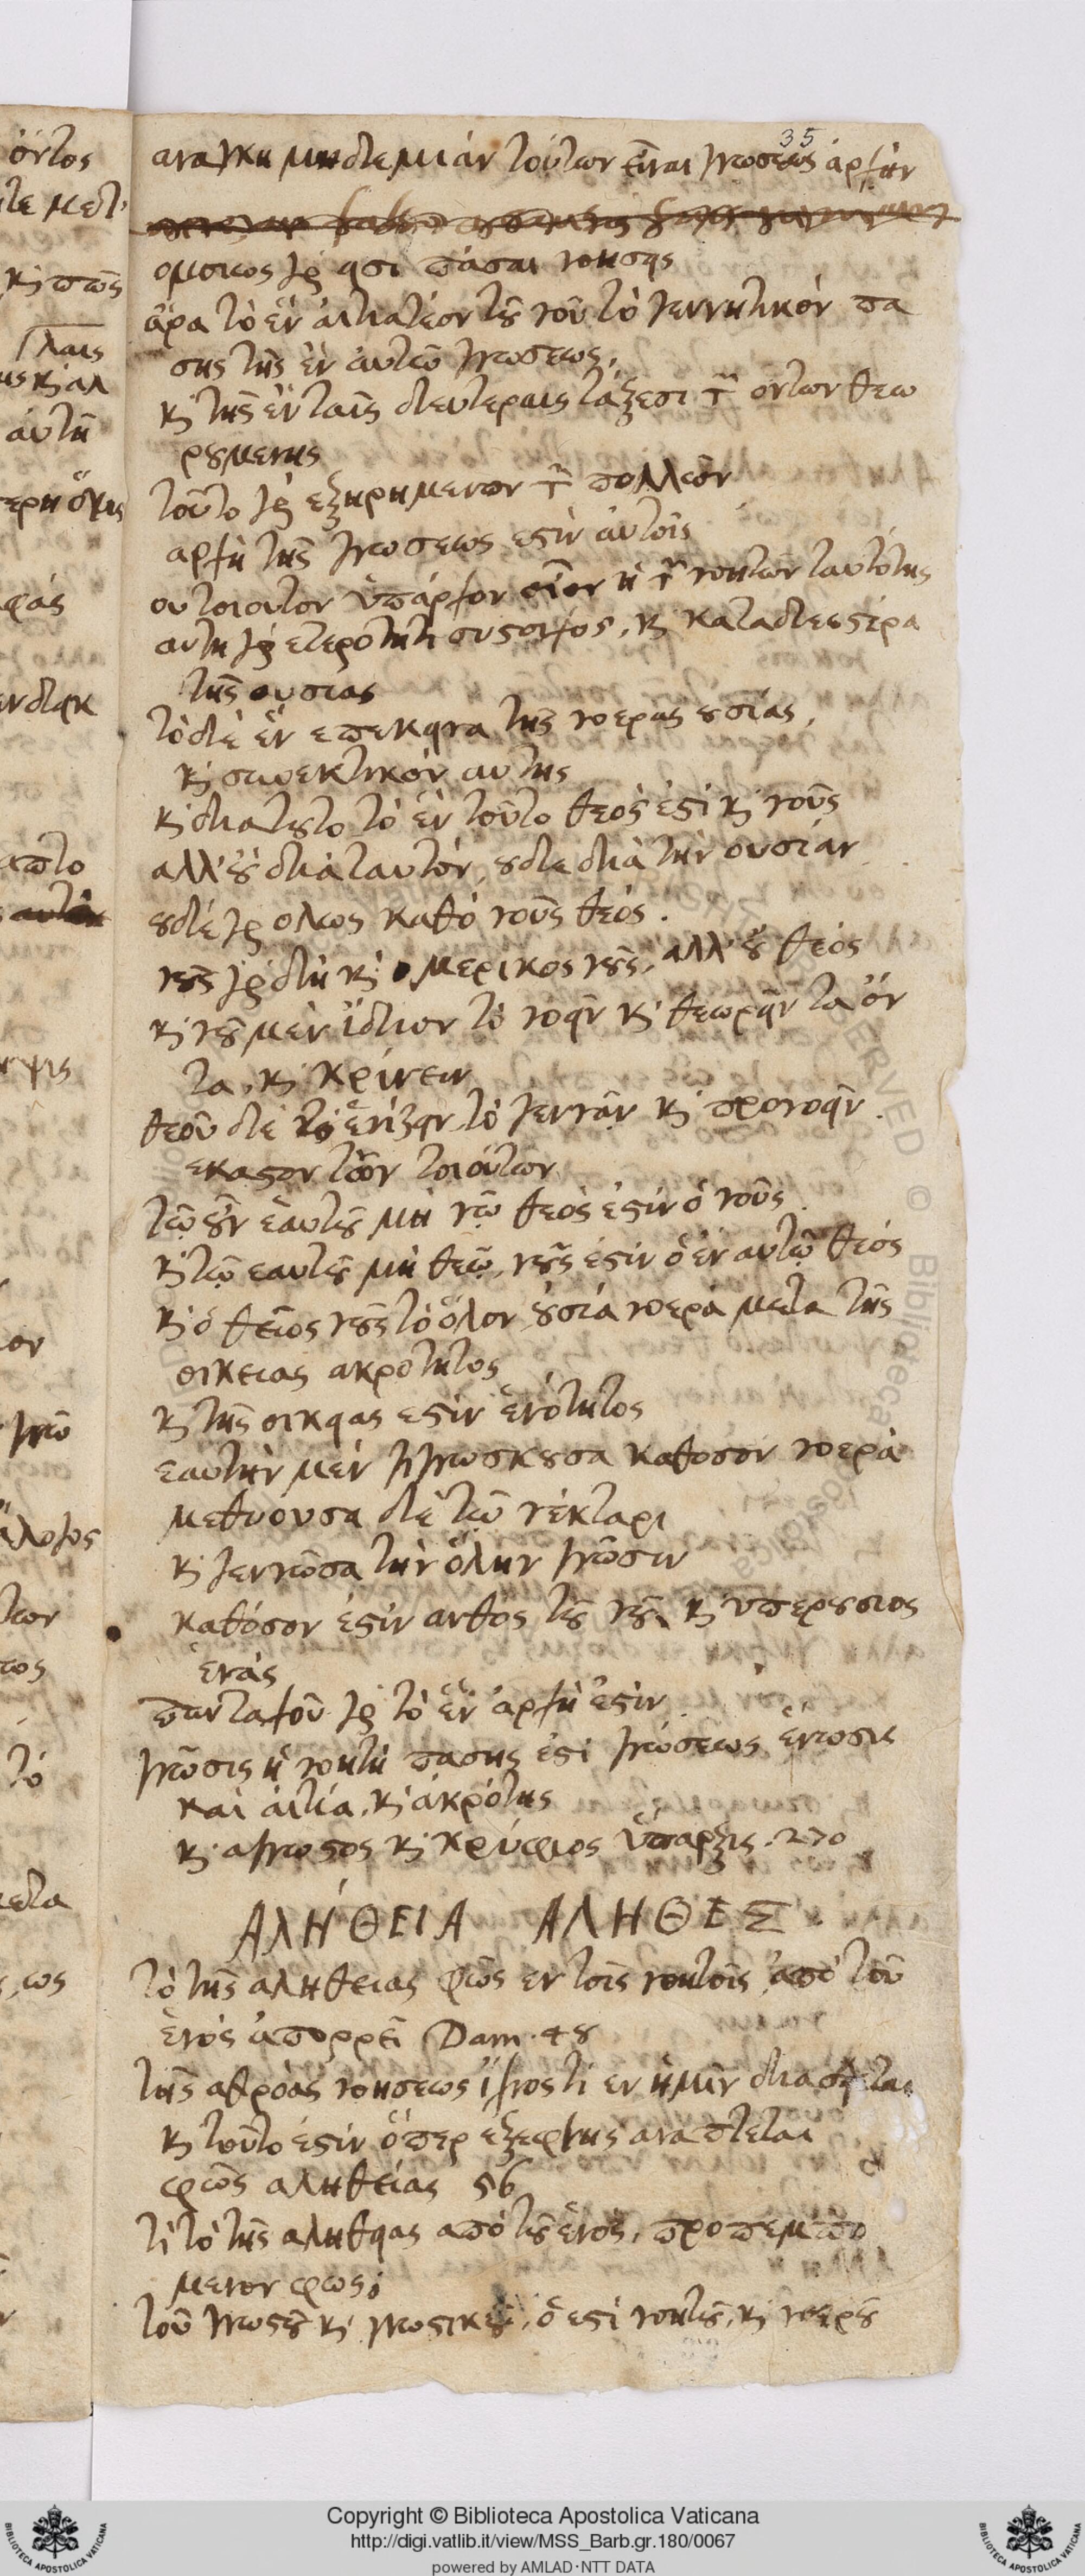 35
αναγκη μηδεμιάν τούτων εἶναι γνώσεως ἀρχὴν
ομοιως γὰρ εἰσι πᾶσαι νοησεις
ἄρα τὸ ἓν ἀιτιατέον τοῦ νοῦ τὸ γεννητικόν πα
σης τῆς ἐν ἀυτῶ γνωσεως.
κὶ τῆς ἐν ταῖς δευτεραις τάξεσι τῶν οντων θεω
ρουμενης
τοῦτο γὰρ εξηρημενον τῶν πολλῶν
αρχὴ τῆς γνωσεως εστὶν ἀυτοῖς
ου τοιουτον ὑπάρχον οἷον ἡ τῶν νοητῶν ταυτότης
αυτη γὰρ ετερότητι συστοιχός, κὶ καταδεεστέρα
τῆς ουσίας
τὸ δὲ ἓν επεκεινα τῆς νοερας ουσίας,
κὶ συνεκτικόν αυτης
κὶ διατουτο τὸ ἓν τοῦτο θεὸς ἐστὶ κὶ νοῦς
αλλ' οὐ διὰ ταυτόν, ουδε διὰ τὴν ουσίαν
ουδέ γὰρ ολως καθὸ νοῦς θεός.
νοῦς γὰρ δὴ κὶ ὁ μερικος νοῦς, αλλ' οὐ θεός
κὶ νοῦ μὲν ἴδιον τὸ νοεῖν κὶ θεωρεῖν τα ὄν
τα, κὶ κρίνειν
θεοῦ δὲ τὸ ἑνίζειν τὸ γεννᾶν κὶ προνοεῖν.
εκαστον τῶν τοιούτων
τῶ οὖν ἑαυτοῦ μὴ νῶ θεὸς ἐστὶν ὁ νοῦς.
κὶ τῶ εαυτοῦ μὴ θεῶ, νοῦς ἐστὶν ὁ ἐν αυτῶ θεός
κὶ ὁ θεῖος νοῦς τὸ ὅλον οὐσία νοερὰ μετα τῆς
οικειας ακρότητος
κὶ τῆς οικειας εστὶν ἑνότητος
εαυτὴν μὲν γιγνωσκουσα καθοσον νοερὰ
μεθυουσα δὲ τῶ νέκταρι
κὶ γεννῶσα τὴν ὅλην γνῶσιν
καθόσον ἐστὶν ανθος τοῦ νοῦ, κὶ υπερουσιος
ἑνάς
πανταχοῦ γὰρ τὸ ἓν ἀρχὴ ἐστὶν
γνῶσις ἡ νοητὴ πασης ἐστὶ γνώσεως ἕνωσις
και ἀιτία, κὶ ἀκρότης
κὶ αγνωστος κὶ κρύφιος ὕπαρξις. 270
ΑΛΗΘΕΙΑ ΑΛΗΘΕΣ
τὸ τῆς αληθειας φῶς εν τοῖς νοητοῖς, ἀπὸ τοῦ
ἑνός ἀπορρεῖ Dam. 48
τῆς αθρόας νοησεως ἴχνος τὶ εν ἡμῖν
κὶ τοῦτο ἐστὶν ὅπερ ἐξεφνης αναπτεται
φῶς αληθείας 56
τὶ τὸ τῆς αληθειας απὸ τοῦ ἑνὸς, προπεμπο
μενον φως;
τοῦ γνωστοῦ κὶ γνωστικοῦ, ὅ εστὶ νοητοῦ, κὶ νοεροῦ
Copyright © Biblioteca Apostolica Vaticana
http://digi.vatlib.it/view/MSS_Barb.gr.180/0067
powered by AMLAD·NTT DATA